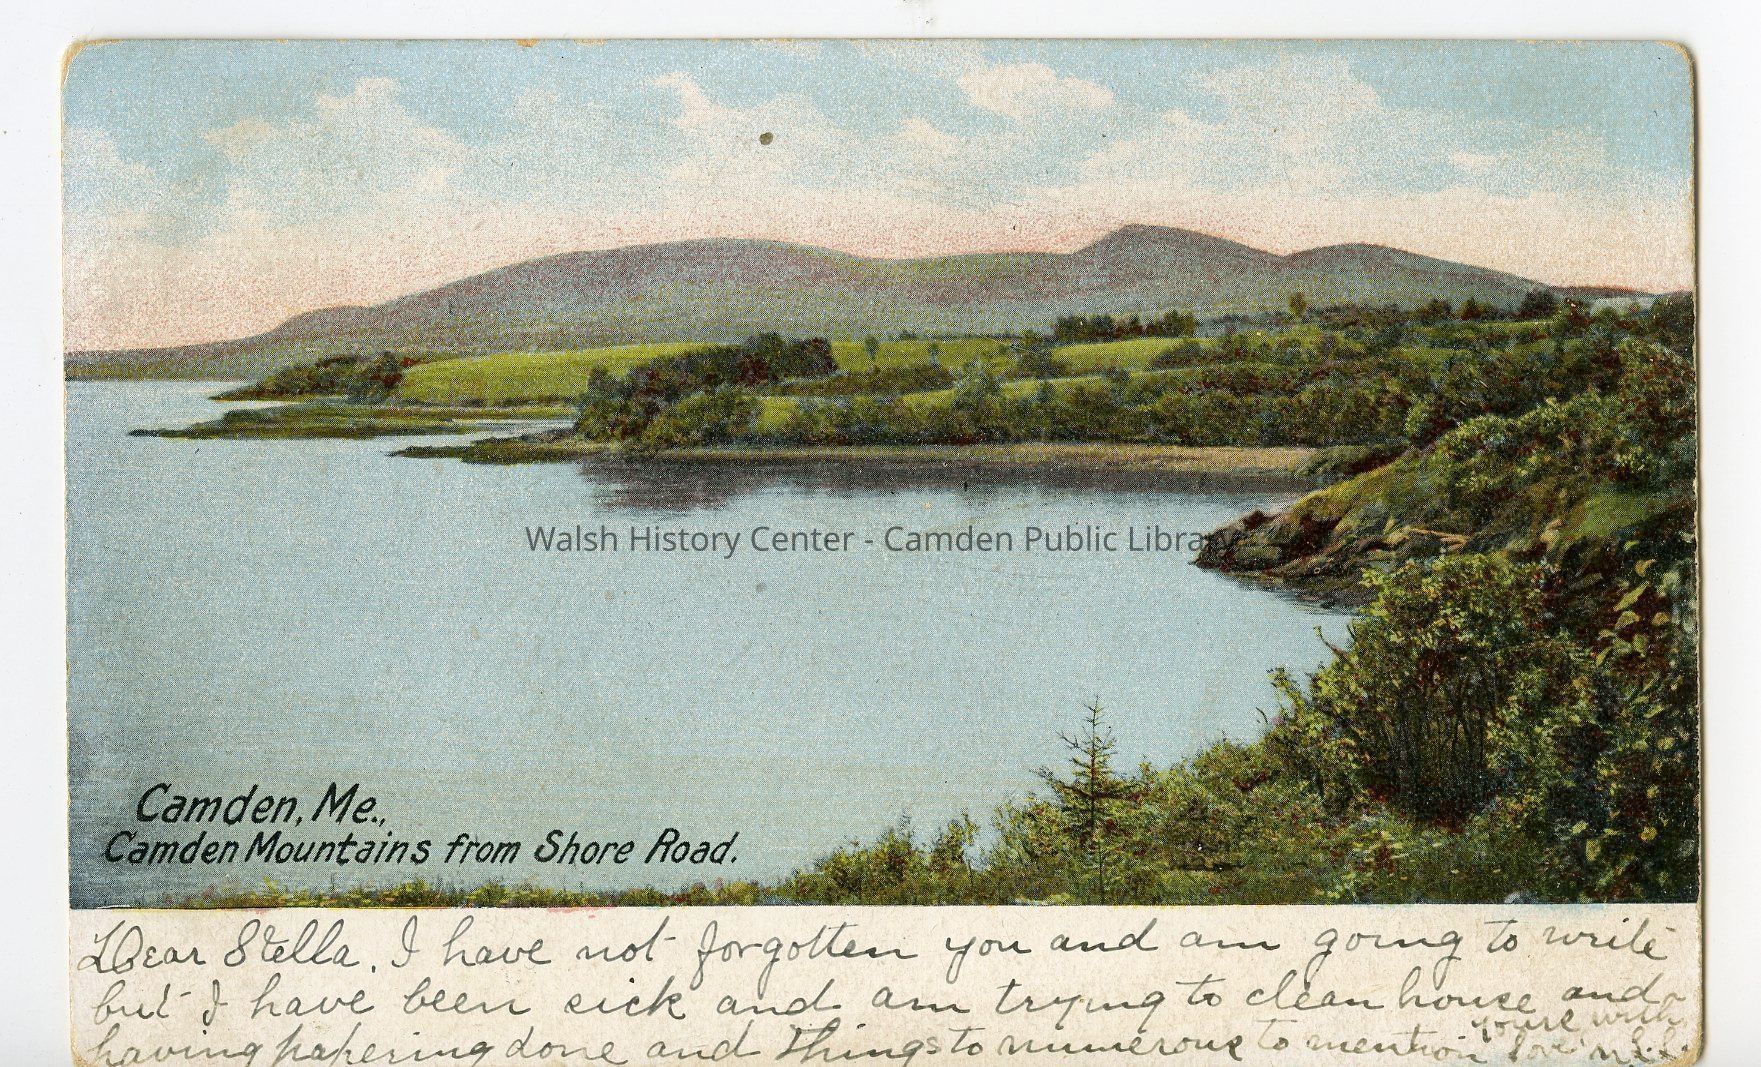 Walsh History Center - Camden Public Library
Camden, Me.,
Camden Mountains from Shore Road.
Dear Stella, I have not forgotten you and am going to write
but I have been sick and am trying to clean house and
having papering done and things to numerous to mention
yours with
love